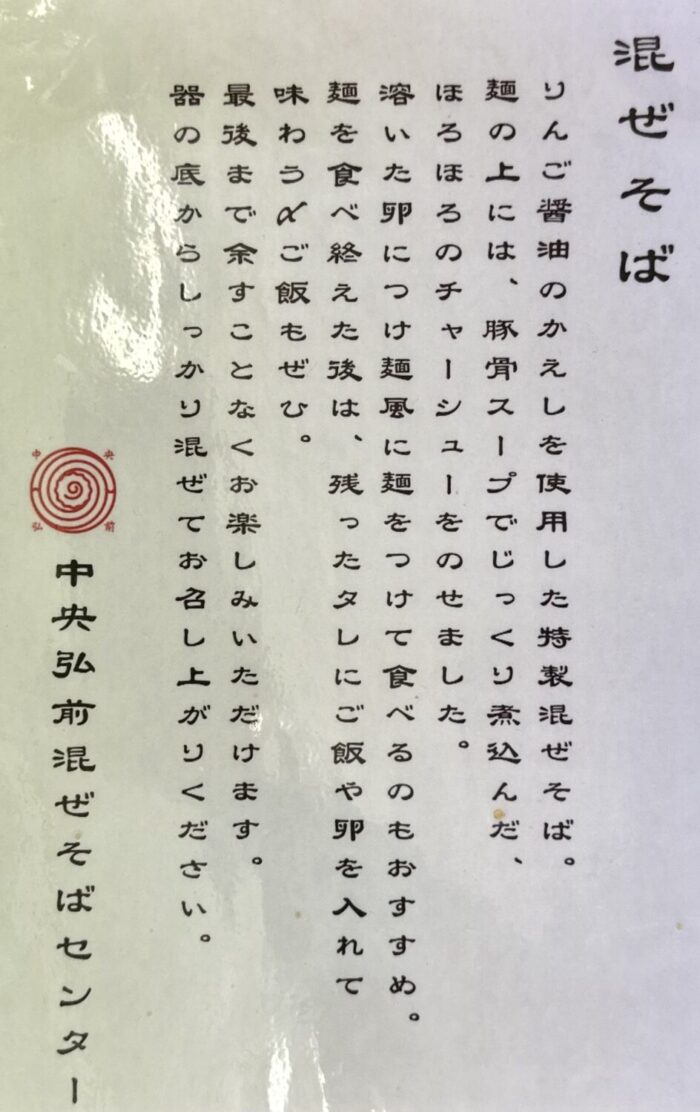 混ぜそば
りんご醤油のかえしを使用した特製混ぜそば。
麺の上には、豚骨スープでじっくり煮込んだ、
ほろほろのチャーシューをのせました。
溶いた卵につけ麺風に麺をつけて食べるのもおすすめ。
麺を食べ終えた後は、残ったタレにご飯や卵を入れて
味わう〆ご飯もぜひ。
最後まで余すことなくお楽しみいただけます。
器の底からしっかり混ぜてお召し上がりください。
中央弘前
中央弘前混ぜそばセンター